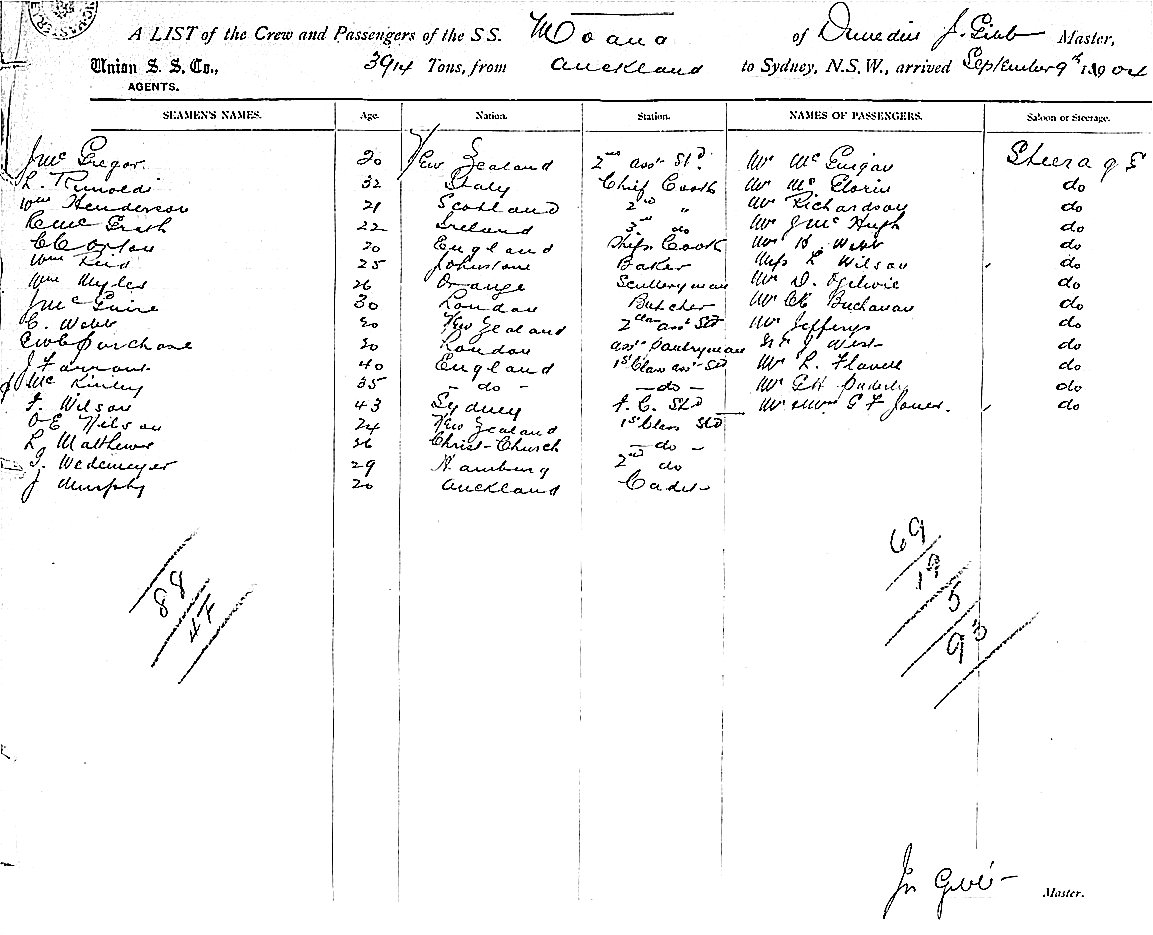 A LIST of the Crew and Passengers of the SS. Moana of Dunedin J. Gibb Master,
Union S. S. Co., 3914 Tons, from Auckland to Sydney, N.S.W., arrived September 9th 1904
AGENTS.
SEAMEN'S NAMES. Age. Nation. Station. NAMES OF PASSENGERS. Saloon or Steerage.
J McGregor. 20 New Zealand 2nd asst Std. Mr McGuigan Steerage
L. Rinoldi 32 Italy Chief Cook Mr do
Wm Henderson 21 Scotland 2nd " Mr Richardson do
McGrath 22 Ireland 3rd do Mr J McHugh do
CC Orton 20 England Ships Cook Mr H. Webb do
Wm Reid 25 Johnstone Baker Miss L Wilson do
Wm Myles 26 Orange Sculleryman Mr D. Ogilvie do
J McGuire 30 London Butcher Mr Buchanan do
C. Webb 20 New Zealand 2nd Class asst Std Mr Jefferys do
Purchase 20 London asst Pantryman J West do
J Farrant 40 England 1st Class asst Std Mr L. Flavell do
McKinley 35 - do - - do - Mr G H do
F. Wilson 43 Sydney F. C. Std Mr & Mrs G F Jones. do
O E Nilson 24 New Zealand 1st Class Std
L Matthews 26 Christ-Church - do -
G. Wedemeyer 29 Hamburg 2nd do
J Murphy 20 Auckland Cadet
69
19
88 5
47 93
Jn Gibb Master.